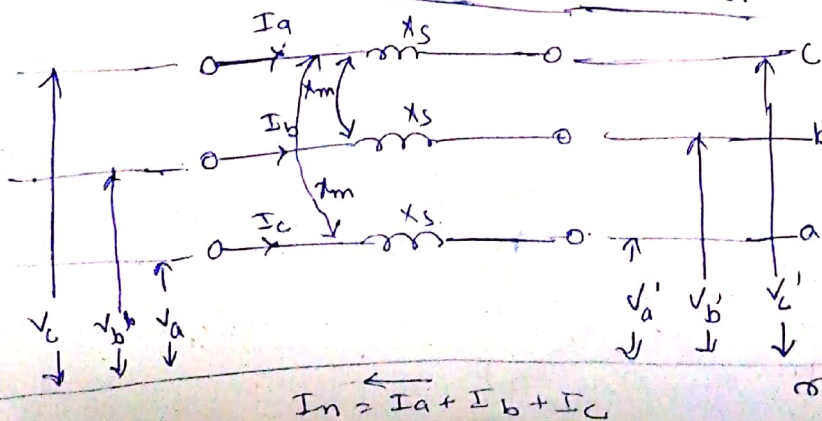 Ia Xs C
Xm
Ib Xs b
Xm
Ic Xs a
Vc Vb Va Va' Vb' Vc'
In = Ia + Ib + Ic